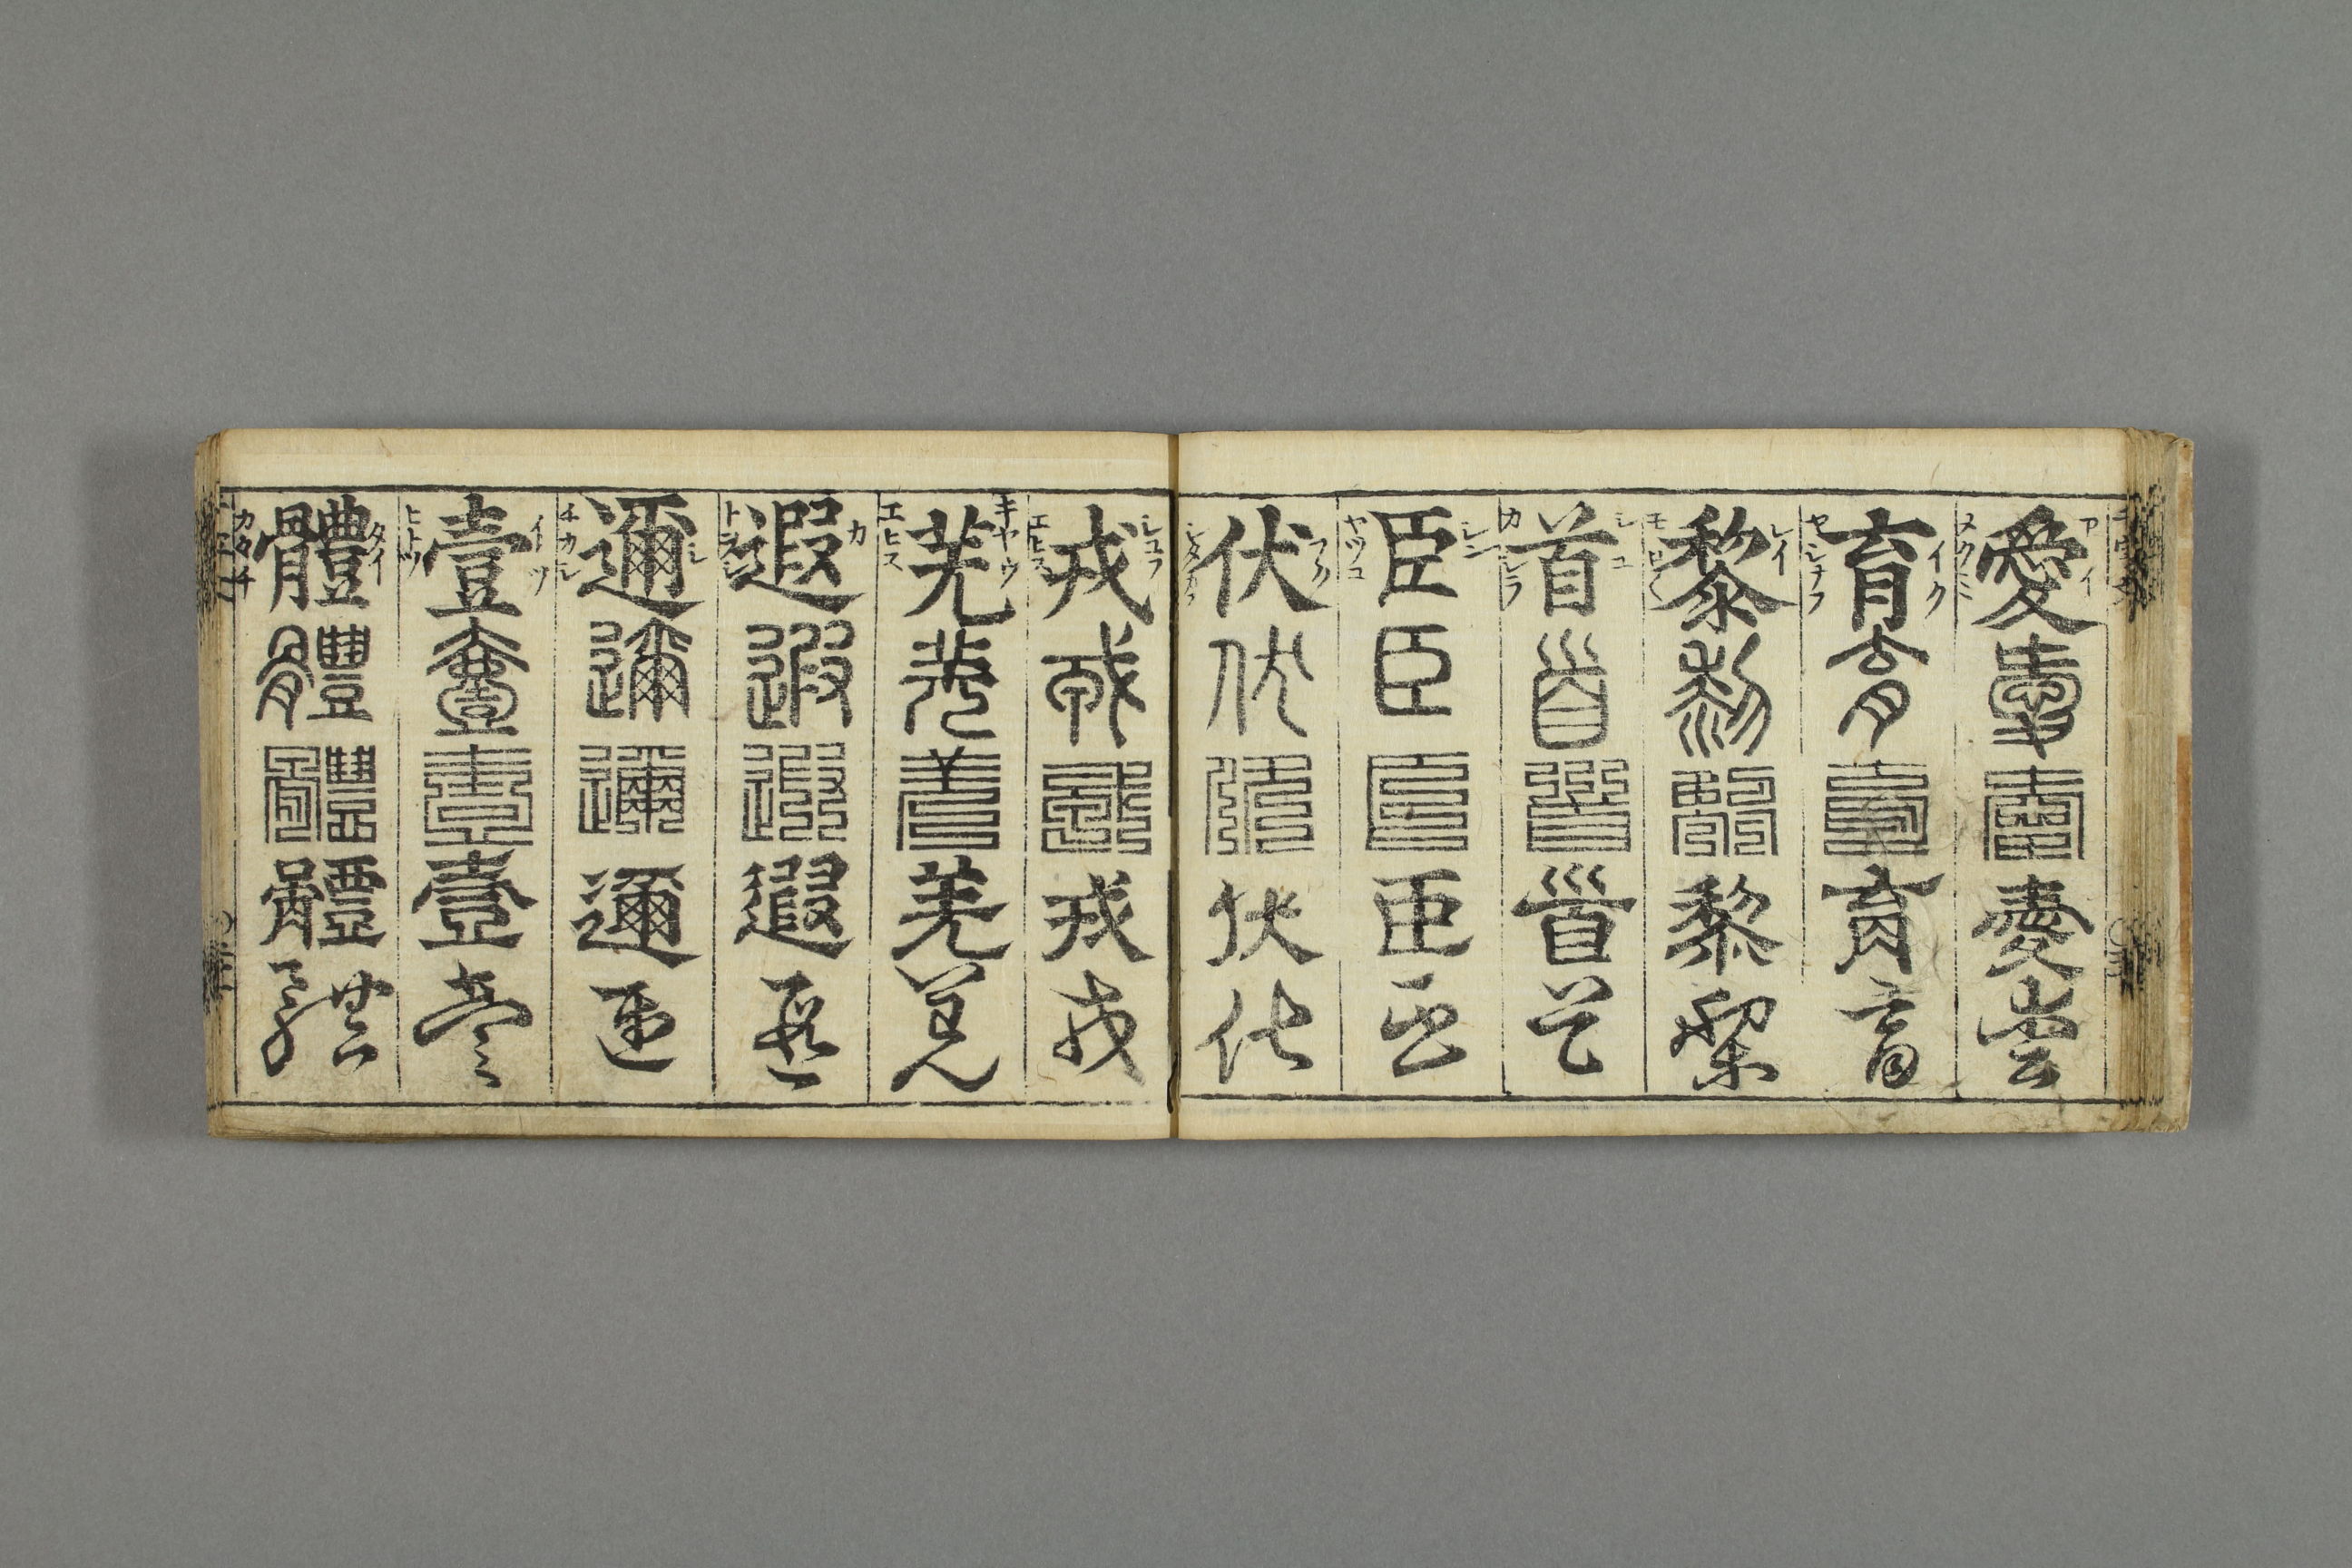 アイ
愛愛愛愛愛
メクミ
イク
育育育育育
ヤシナフ
レイ
黎黎黎黎黎
モロ〱
シユ
首首首首首
カシラ
シン
臣臣臣臣臣
ヤツコ
フク
伏伏伏伏伏
シタカフ
シユフ
戎戎戎戎戎
エヒス
キヤウ
羌羌羌羌羌
エヒス
カ
遐遐遐遐遐
トヲシ
シ
邇邇邇邇邇
チカシ
イツ
壹壹壹壹壹
ヒトツ
タイ
體體體體體
カタチ